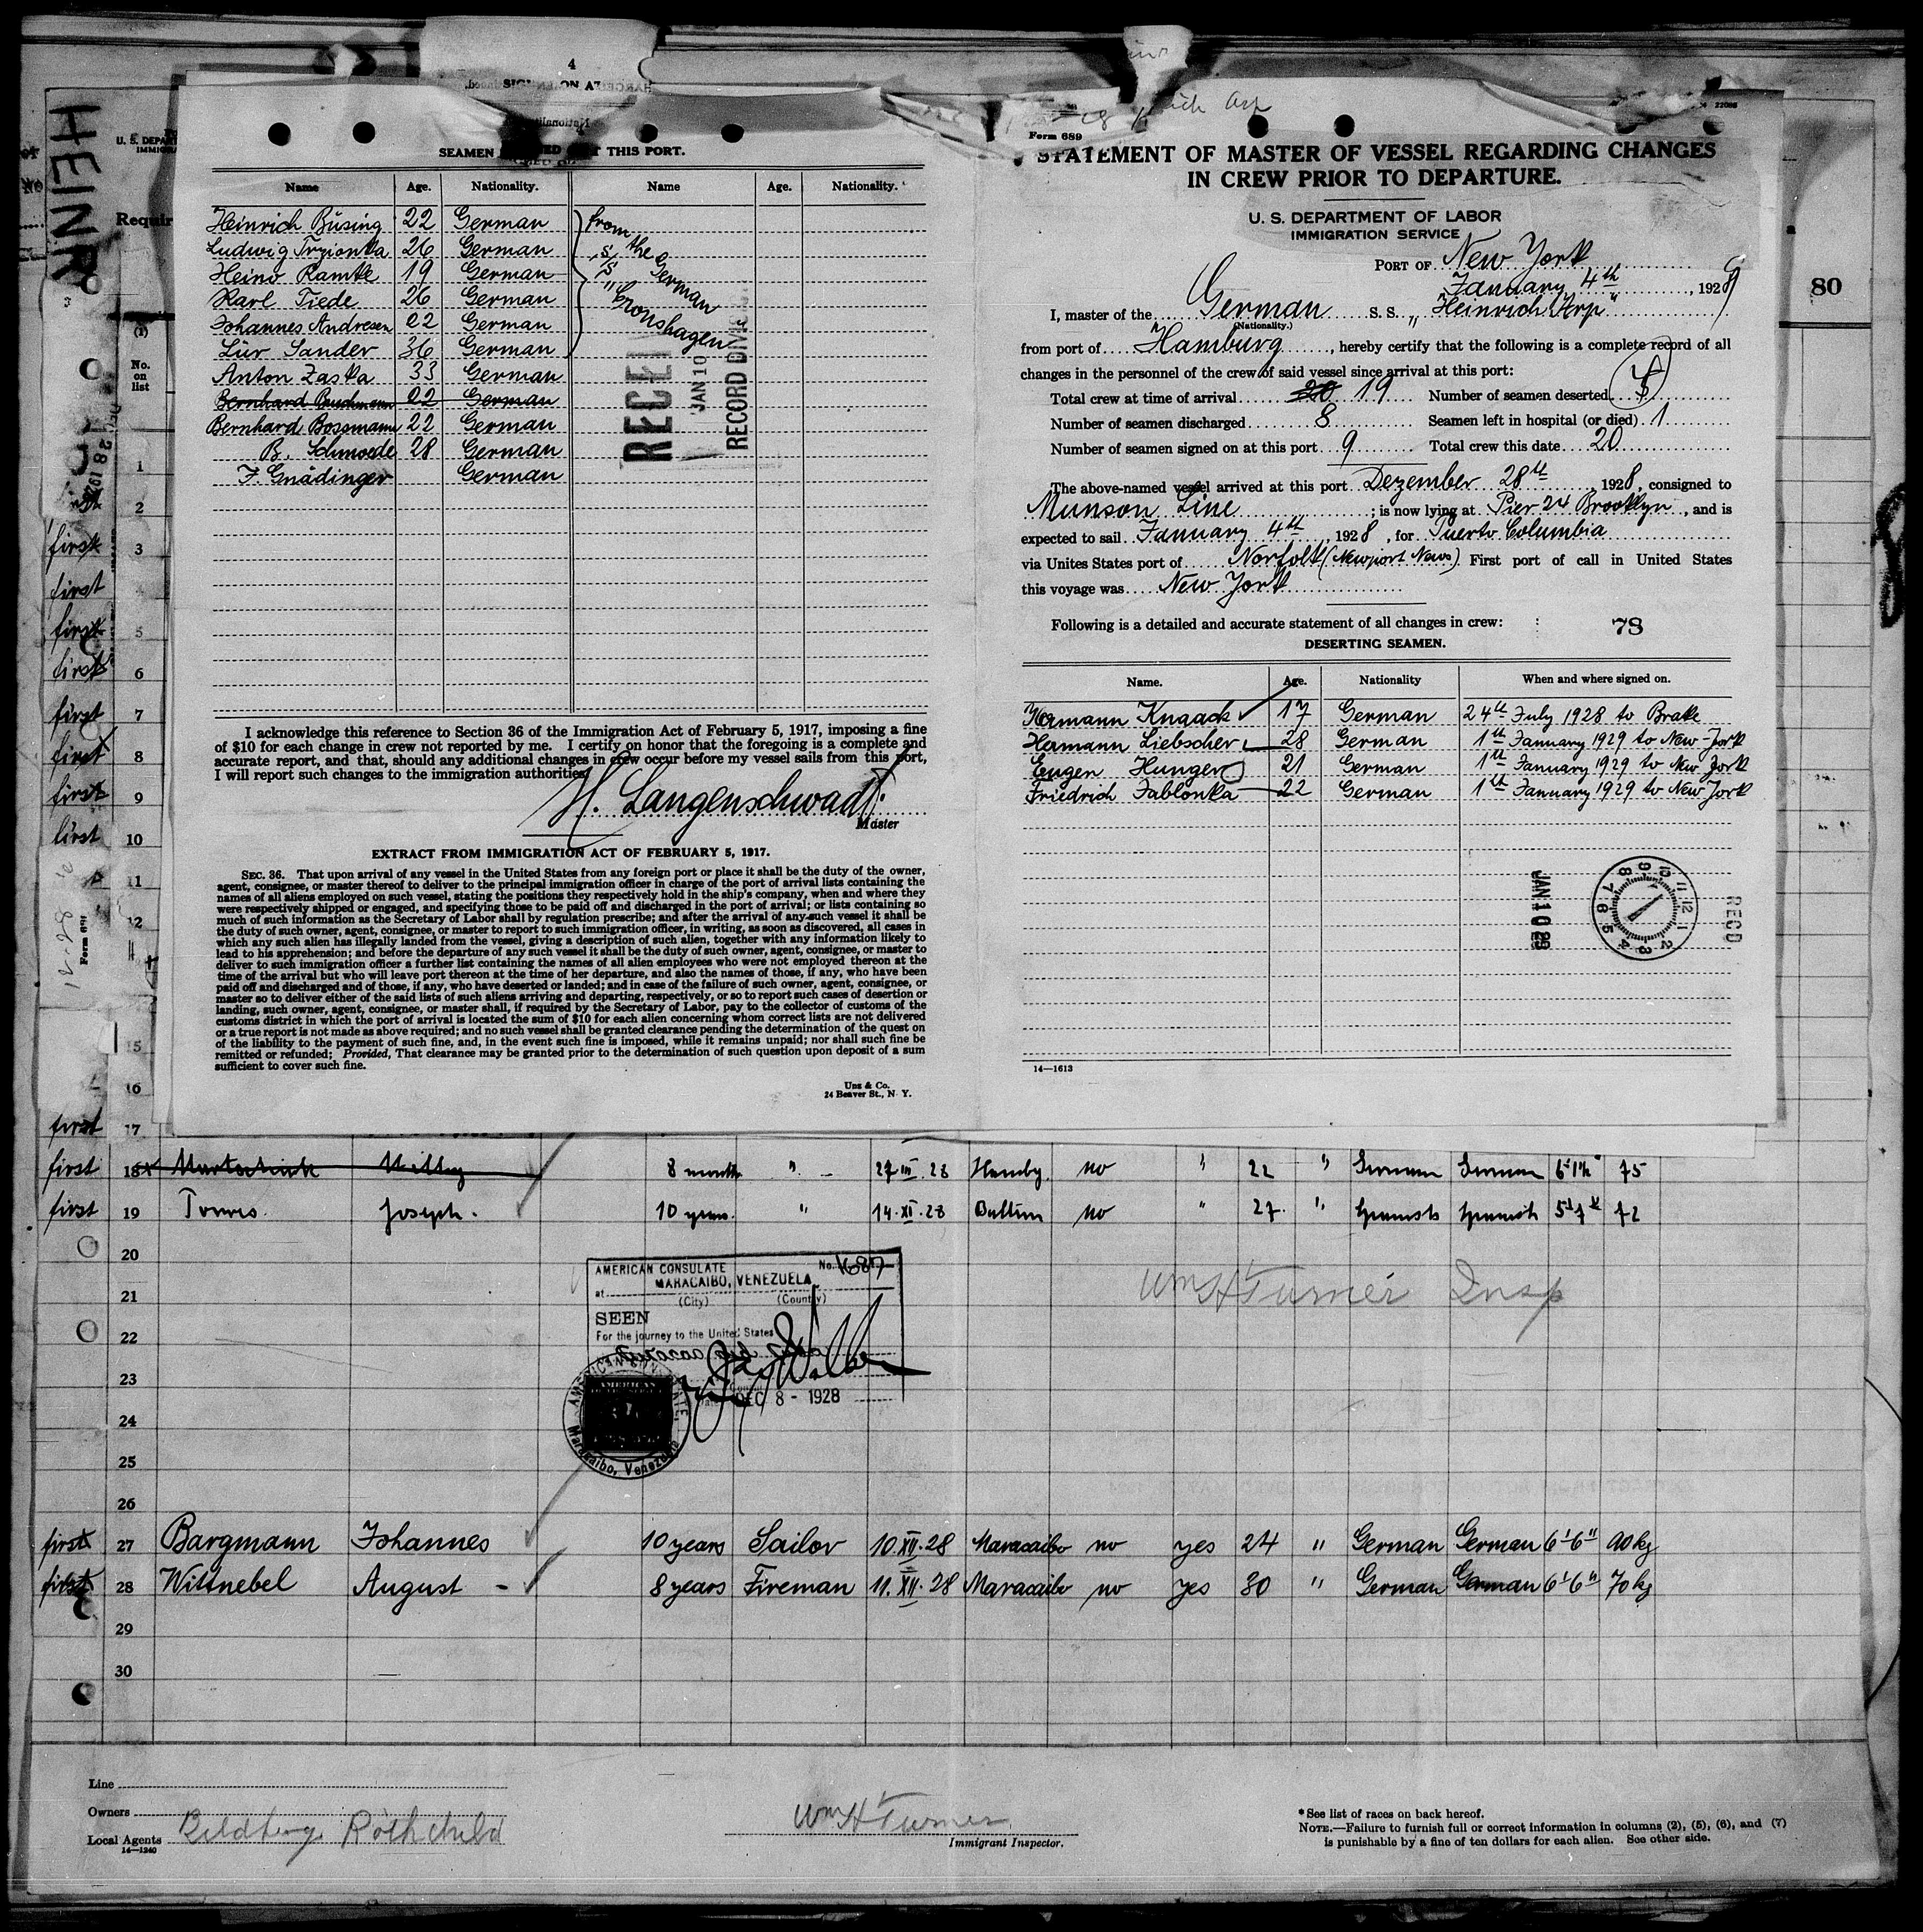 4
HEINR
SEAMEN THIS PORT.
Name Age. Nationality. Name Age. Nationality.
Heinrich Büsing 22 German from
Ludwig Tryionka 26 German the
Heino Ramke 19 German S/S German
Karl Tiede 26 German " Cronshagen
Johannes Andresen 22 German
Lür Sander 36 German
Anton Zaska 33 German
Bernhard 22 German
Bernhard Bossmann 22 German
B. Schmoede 28 German
F. Gnädinger German
JAN 10
RECORD DIVIS
I acknowledge this reference to Section 36 of the Immigration Act of February 5, 1917, imposing a fine
of $10 for each change in crew not reported by me. I certify on honor that the foregoing is a complete and
accurate report, and that, should any additional changes in crew occur before my vessel sails from this port,
I will report such changes to the immigration authorities.
H. Langenschwadt.
Master
EXTRACT FROM IMMIGRATION ACT OF FEBRUARY 5, 1917.
SEC. 36. That upon arrival of any vessel in the United States from any foreign port or place it shall be the duty of the owner,
agent, consignee, or master thereof to deliver to the principal immigration officer in charge of the port of arrival lists containing the
names of all aliens employed on such vessel, stating the positions they respectively hold in the ship's company, when and where they
were respectively shipped or engaged, and specifying those to be paid off and discharged in the port of arrival; or lists containing so
much of such information as the Secretary of Labor shall by regulation prescribe; and after the arrival of any such vessel it shall be
the duty of such owner, agent, consignee, or master to report to such immigration officer, in writing, as soon as discovered, all cases in
which any such alien has illegally landed from the vessel, giving a description of such alien, together with any information likely to
lead to his apprehension; and before the departure of any such vessel it shall be the duty of such owner, agent, consignee, or master to
deliver to such immigration officer a further list containing the names of all alien employees who were not employed thereon at the
time of the arrival but who will leave port thereon at the time of her departure, and also the names of those, if any, who have been
paid off and discharged and of those, if any, who have deserted or landed; and in case of the failure of such owner, agent, consignee, or
master so to deliver either of the said lists of such aliens arriving and departing, respectively, or so to report such cases of desertion or
landing, such owner, agent, consignee, or master shall, if required by the Secretary of Labor, pay to the collector of customs of the
customs district in which the port of arrival is located the sum of $10 for each alien concerning whom correct lists are not delivered
or a true report is not made as above required; and no such vessel shall be granted clearance pending the determination of the quest on
of the liability to the payment of such fine, and, in the event such fine is imposed, while it remains unpaid; nor shall such fine be
remitted or refunded; Provided, That clearance may be granted prior to the determination of such question upon deposit of a sum
sufficient to cover such fine.
Unz & Co.
24 Beaver St., N. Y.
Form 689
STATEMENT OF MASTER OF VESSEL REGARDING CHANGES
IN CREW PRIOR TO DEPARTURE.
U. S. DEPARTMENT OF LABOR
IMMIGRATION SERVICE
PORT OF New York
January 4th, 1929
I, master of the German S. S. "Heinrich Arp"
(Nationality.)
from port of Hamburg, hereby certify that the following is a complete record of all
changes in the personnel of the crew of said vessel since arrival at this port:
Total crew at time of arrival 20 19 Number of seamen deserted
Number of seamen discharged 8 Seamen left in hospital (or died) 1
Number of seamen signed on at this port 9 Total crew this date 20
The above-named vessel arrived at this port Dezember 28th 1928, consigned to
Munson Line; is now lying at Pier 24 Brooklyn, and is
expected to sail January 4th, 1928, for Puerto Columbia
via Unites States port of Norfolk (Newport News) First port of call in United States
this voyage was New York
Following is a detailed and accurate statement of all changes in crew: 78
DESERTING SEAMEN.
Name. Age. Nationality When and where signed on.
Hermann Knaack 17 German 24th July 1928 to Brake
Hermann Liebscher 28 German 1th January 1929 to New-York
Eugen Hunger 21 German 1th January 1929 to New York
Friedrich Jablonka 22 German 1th January 1929 to New York
JAN 10 29
RECD
14—1613
80
U. S. DEPAR
IMMIGRA
Requir
(1)
No.
on
list
1
2
first 3
first 4
first 5
first 6
first 7
first 8
first 9
first 10
11
12
Form 691
15
16
first 17
first 18 8 month " 27 III. 28 Hambg. no " 22 " German German 75
first 19 Torres Joseph. 10 years. " 14. XI. 28 no " 27. " Spanish Spanish 72
20
21
22
23
24
25
26
AMERICAN CONSULATE No. 1687
at MARACAIBO, VENEZUELA
(City) (Country)
SEEN
For the journey to the United States
DEC 8 - 1928
Maracaibo, Venezuela
Wm H Turner Insp
first 27 Bargmann Johannes 10 years Sailor 10. XII. 28 Maracaibo no yes 24 " German German 6'6" 90 kg
first 28 Wittnebel August - 8 years Fireman 11. XII. 28 Maracaibo no yes 30 " German German 6'6" 70 kg
29
30
Line
Owners
Local Agents
14—1240
Wm H Turner
Immigrant Inspector.
* See list of races on back hereof.
NOTE.—Failure to furnish full or correct information in columns (2), (5), (6), and (7)
is punishable by a fine of ten dollars for each alien. See other side.